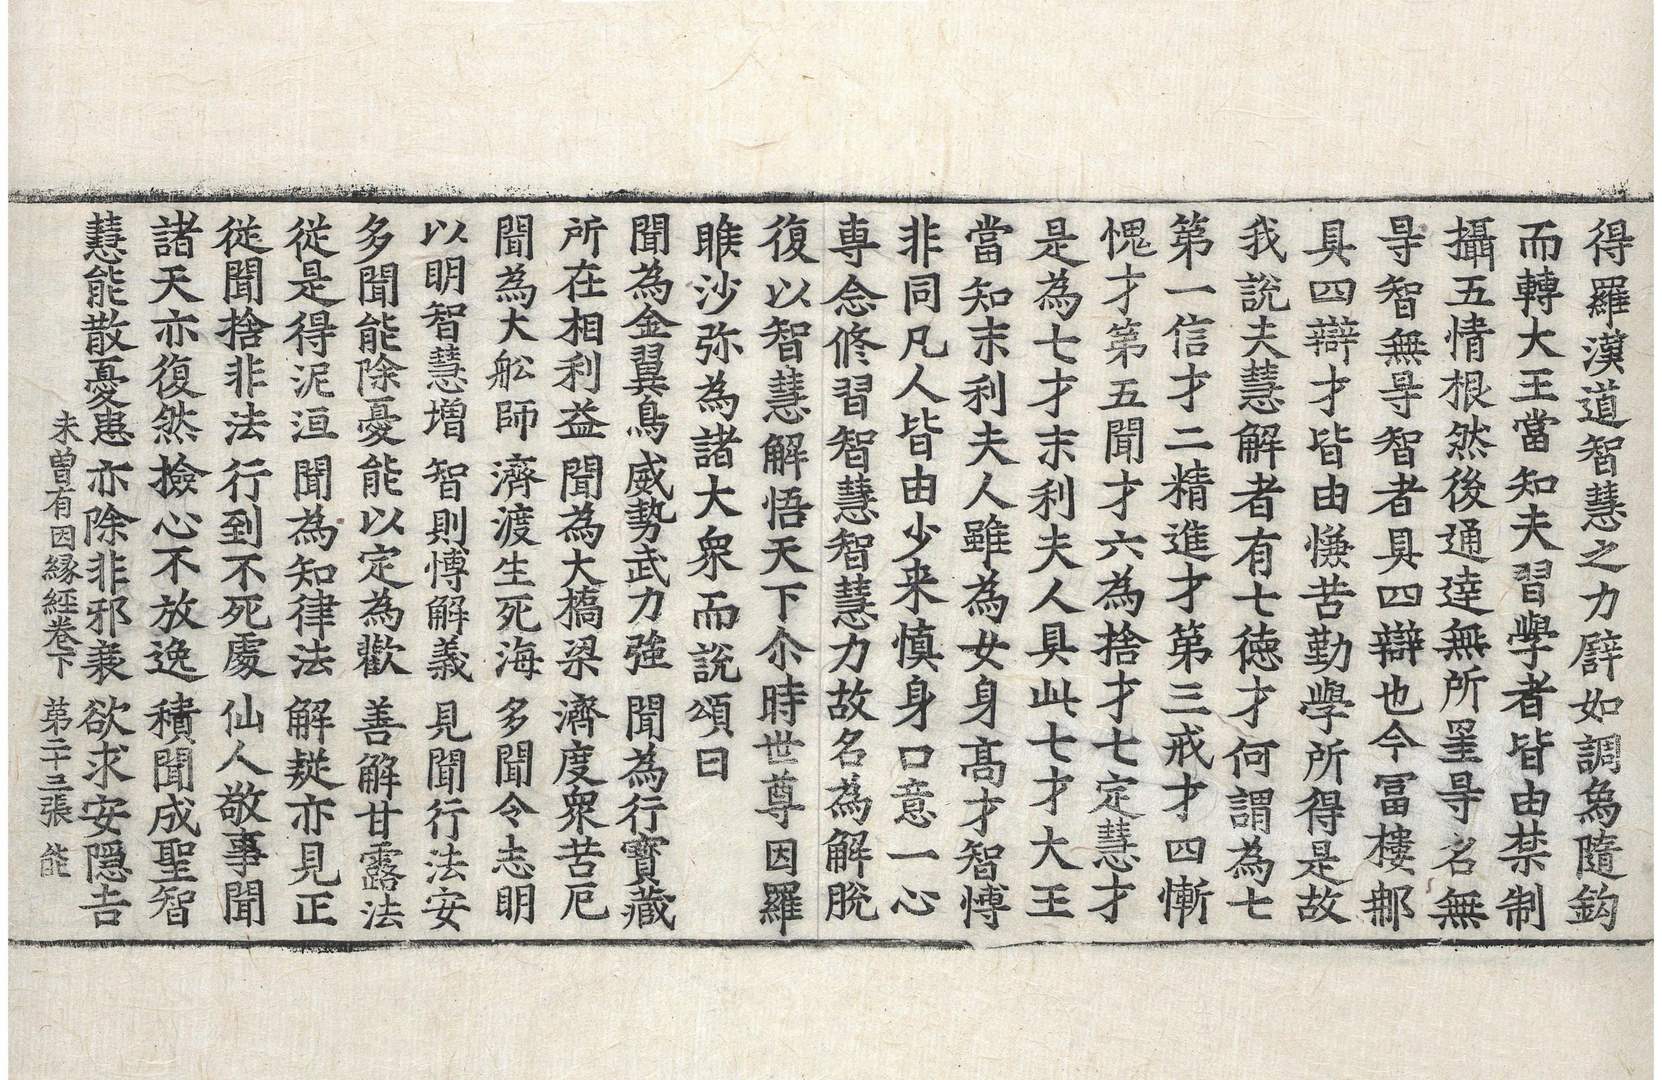 得羅漢道智慧之力譬如調象隨鈎
而轉大王當知夫習學者皆由禁制
攝五情根然後通達無所罣㝵名無
㝵智無㝵智者具四辯也今冨樓那
具四辯才皆由慊苦勤學所得是故
我說夫慧解者有七德才何謂為七
第一信才二精進才第三戒才四慚
愧才第五聞才六為捨才七定慧才
是為七才末利夫人具此七才大王
當知末利夫人雖為女身髙才智愽
非同凡人皆由少来慎身口意一心
専念修習智慧智慧力故名為解脫
復以智慧解悟天下尒時世尊因羅
睺沙弥為諸大衆而說頌曰
聞為金翼鳥 威勢武力強 聞為行寶藏
所在相利益 聞為大橋梁 濟度衆苦厄
聞為大舩師 濟渡生死海 多聞令志明
以明智慧増 智則愽解義 見聞行法安
多聞能除憂 能以定為歡 善解甘露法
從是得泥洹 聞為知律法 解疑亦見正
從聞捨非法 行到不死處 仙人敬事聞
諸天亦復然 撿心不放逸 積聞成聖智
慧能散憂恚 亦除非邪衰 欲求安隱吉
未曾有因縁經卷下 第二十三張 能